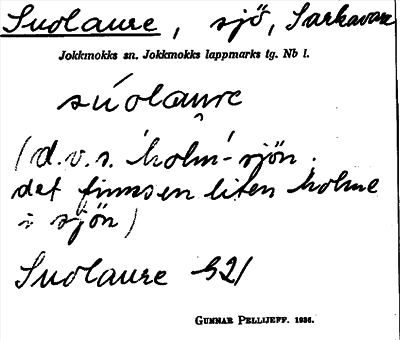 Suolaure, sjö, Sarkavare
Jokkmokks sn. Jokkmokks lappmarks tg. Nb l.
súolau̯re
(d.v.s. 'holm'-sjön.
det finns en liten holme
i sjön)
Suolaure 521
GUNNAR PELLIJEFF. 1936.